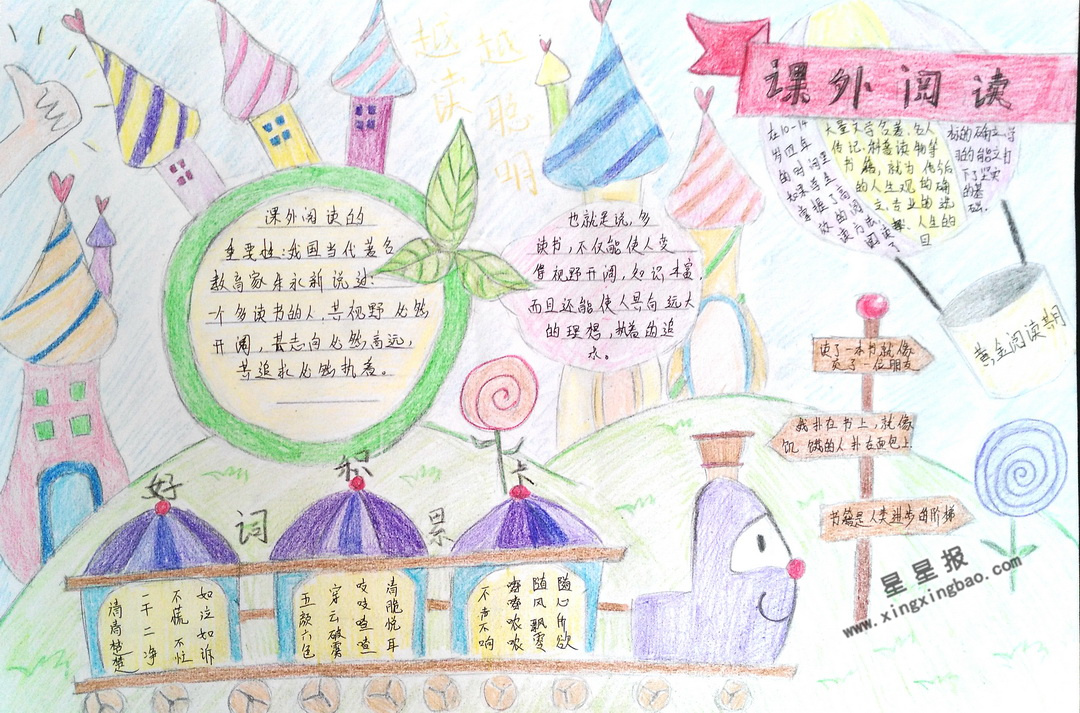 课外阅读
越读
越聪明
课外阅读的
重要性:我国当代著名
教育家朱永新说过:
一个多读书的人,其视野必然
开阔,其志向必然高远,
其追求必然执着。
也就是说,多
读书,不仅能使人变
得视野开阔,知识丰富
而且还能使人具向远大
的理想,执着的追
求。
在10-14
岁四年
的时间里
如果学生
掌握了高
效的阅
读方法
阅读了
大量文学名著、名人
传记、科普读物等
书籍,就为他后
的人生观的确
立、专业的选
择、人生的
目
标的确立、学
习的能立打
下了坚实
的基
础.
黄金阅读期
读了一本书就像
交了一位朋友
我扑在书上,就像
饥饿的人扑在面包上.
书籍是人类进步的阶梯
好词积累上
如泣如诉
不慌不忙
一干二净
清清楚楚
清脆悦耳
吱吱喳喳
穿云破雾
五颜六色
随心所欲
随风飘零
哝哝
不声不响
星星报
www.xingxingbao.com